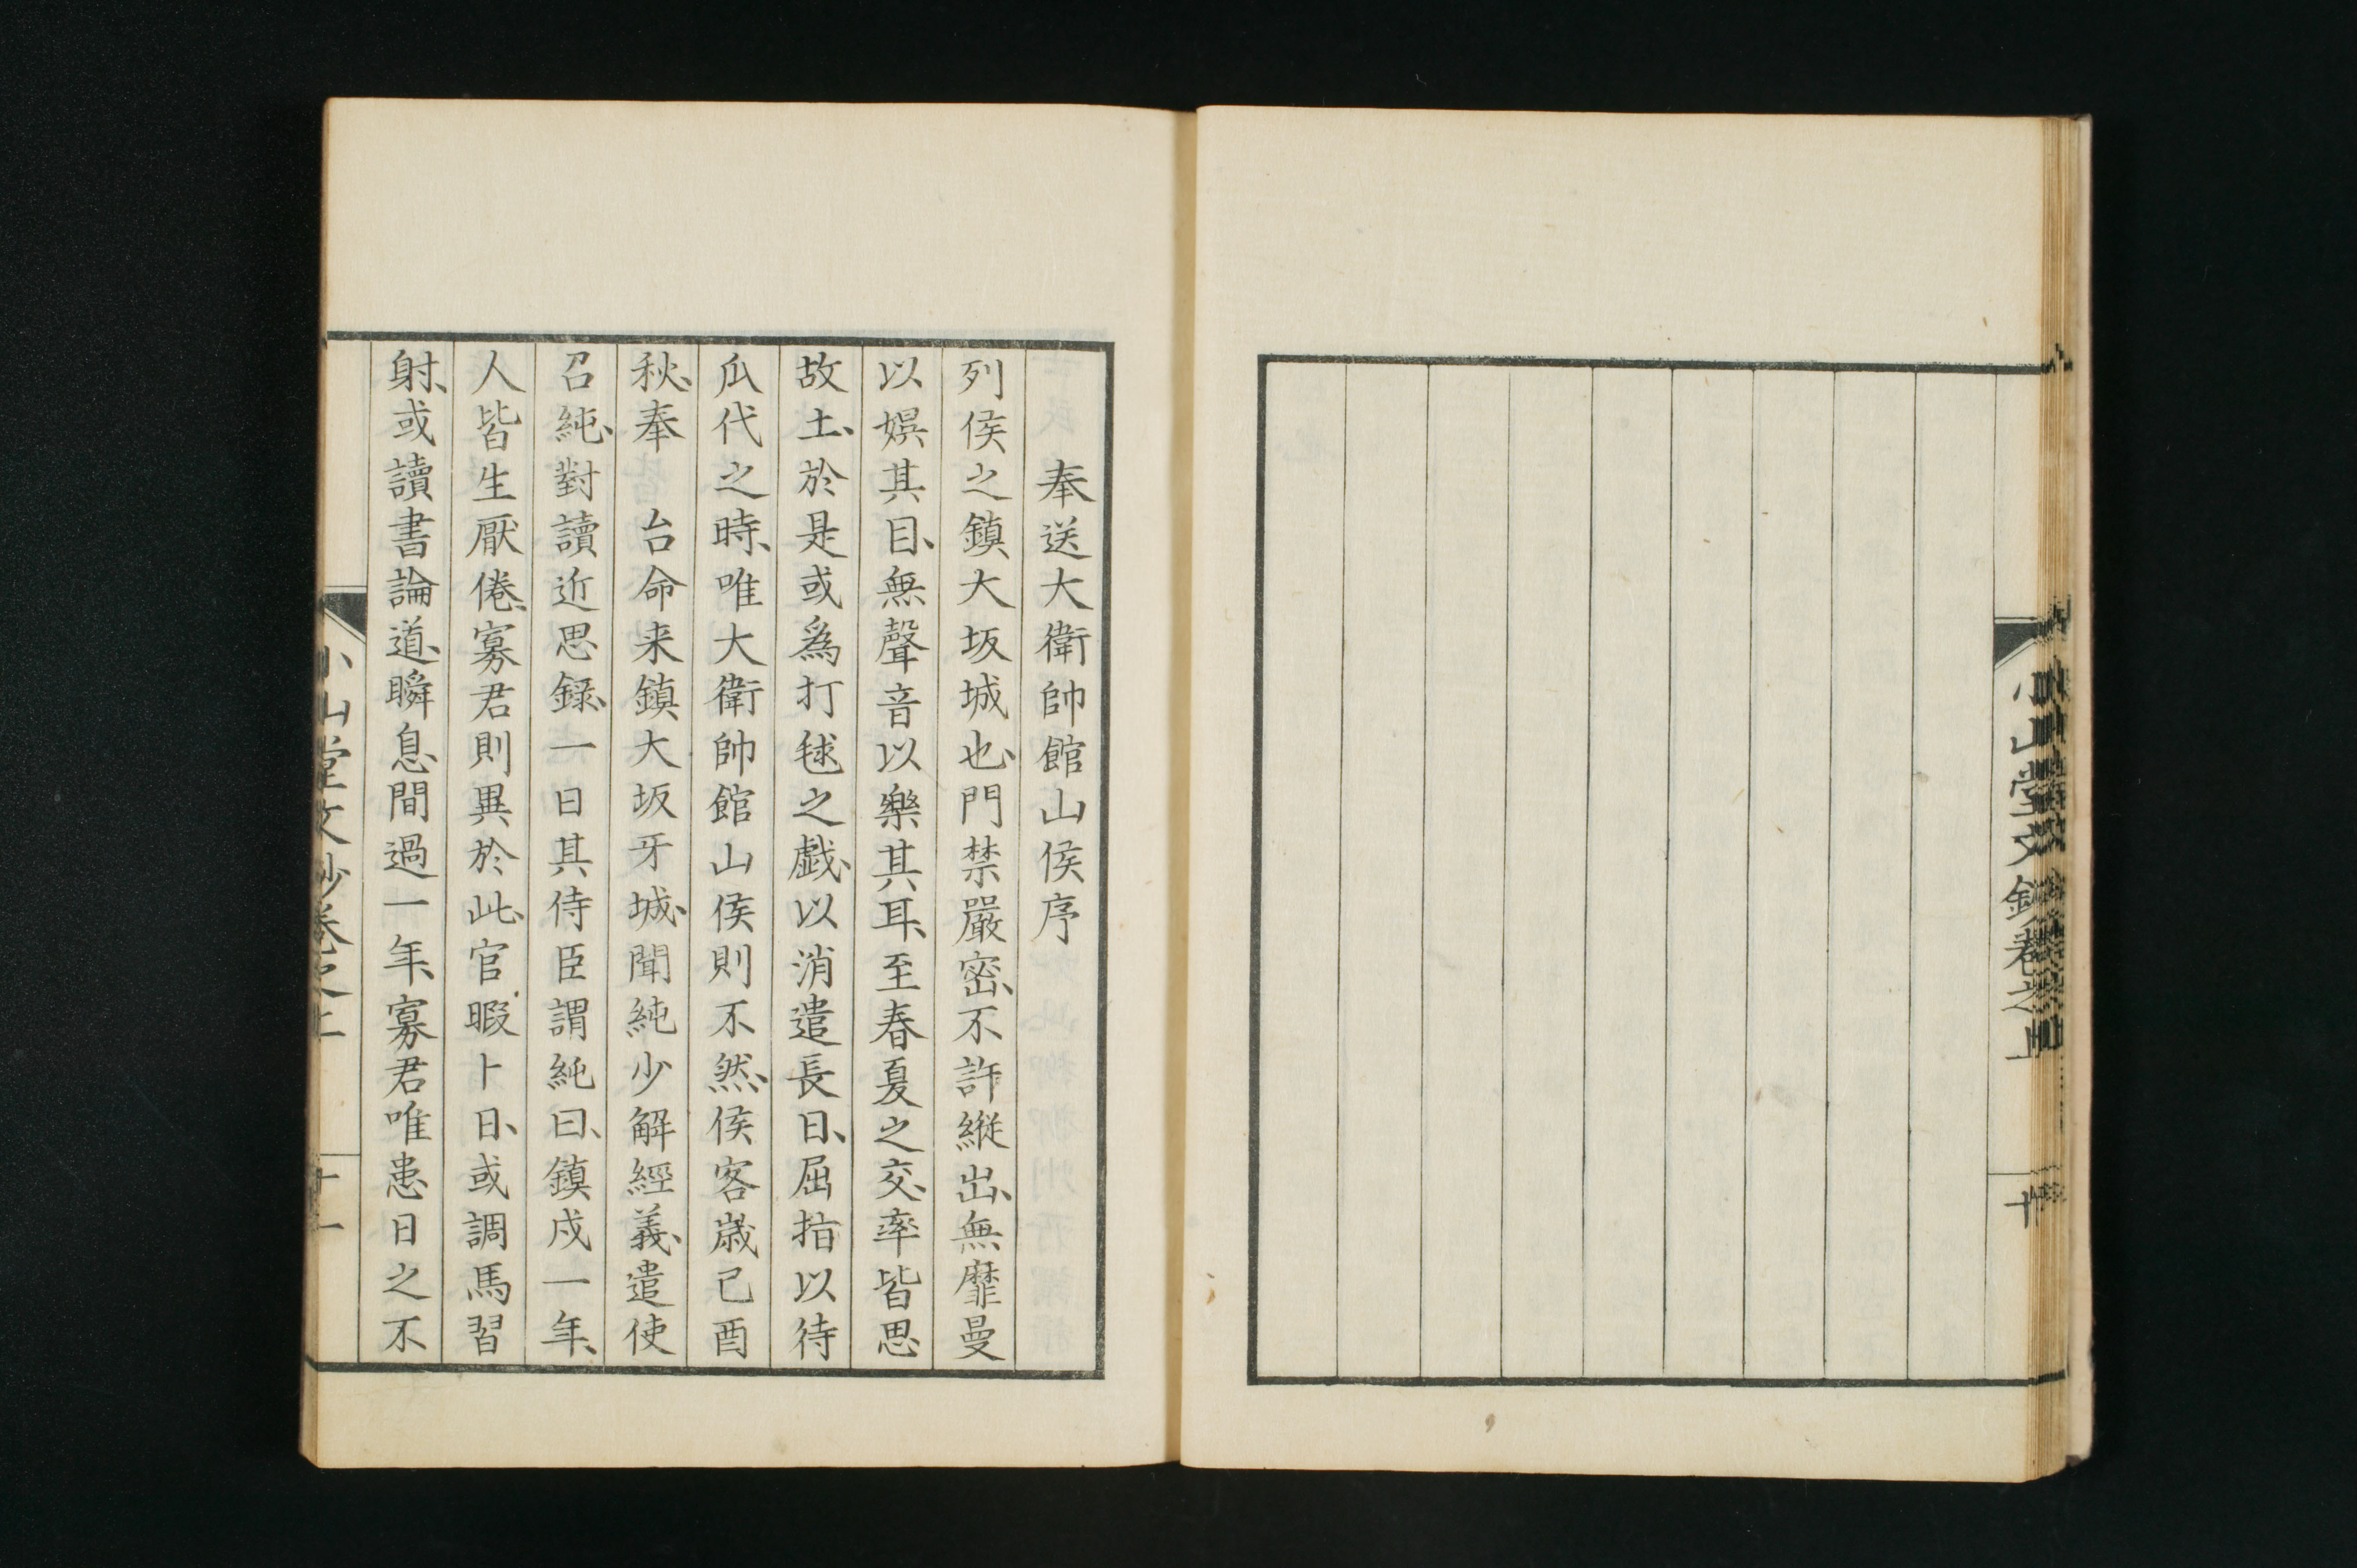 小山堂文鈔卷之上
十
奉送大衛帥館山侯序
列侯之鎮大坂城也、門禁嚴密、不許縱出、無靡曼
以娯其目、無聲音以樂其耳、至春夏之交、率皆思
故土、於是或爲打毬之戯、以消遣長日、屈指以待
瓜代之時、唯大衛帥館山侯則不然、侯客歳己酉
秋、奉　台命来鎮大坂牙城、聞純少解經義、遣使
召純、對讀近思録、一日其侍臣謂純曰、鎮戍一年、
人皆生厭倦、寡君則異於此、官暇卜日、或調馬習
射、或讀書論道、瞬息間過一年、寡君唯患日之不
小山堂文鈔卷之上
十一